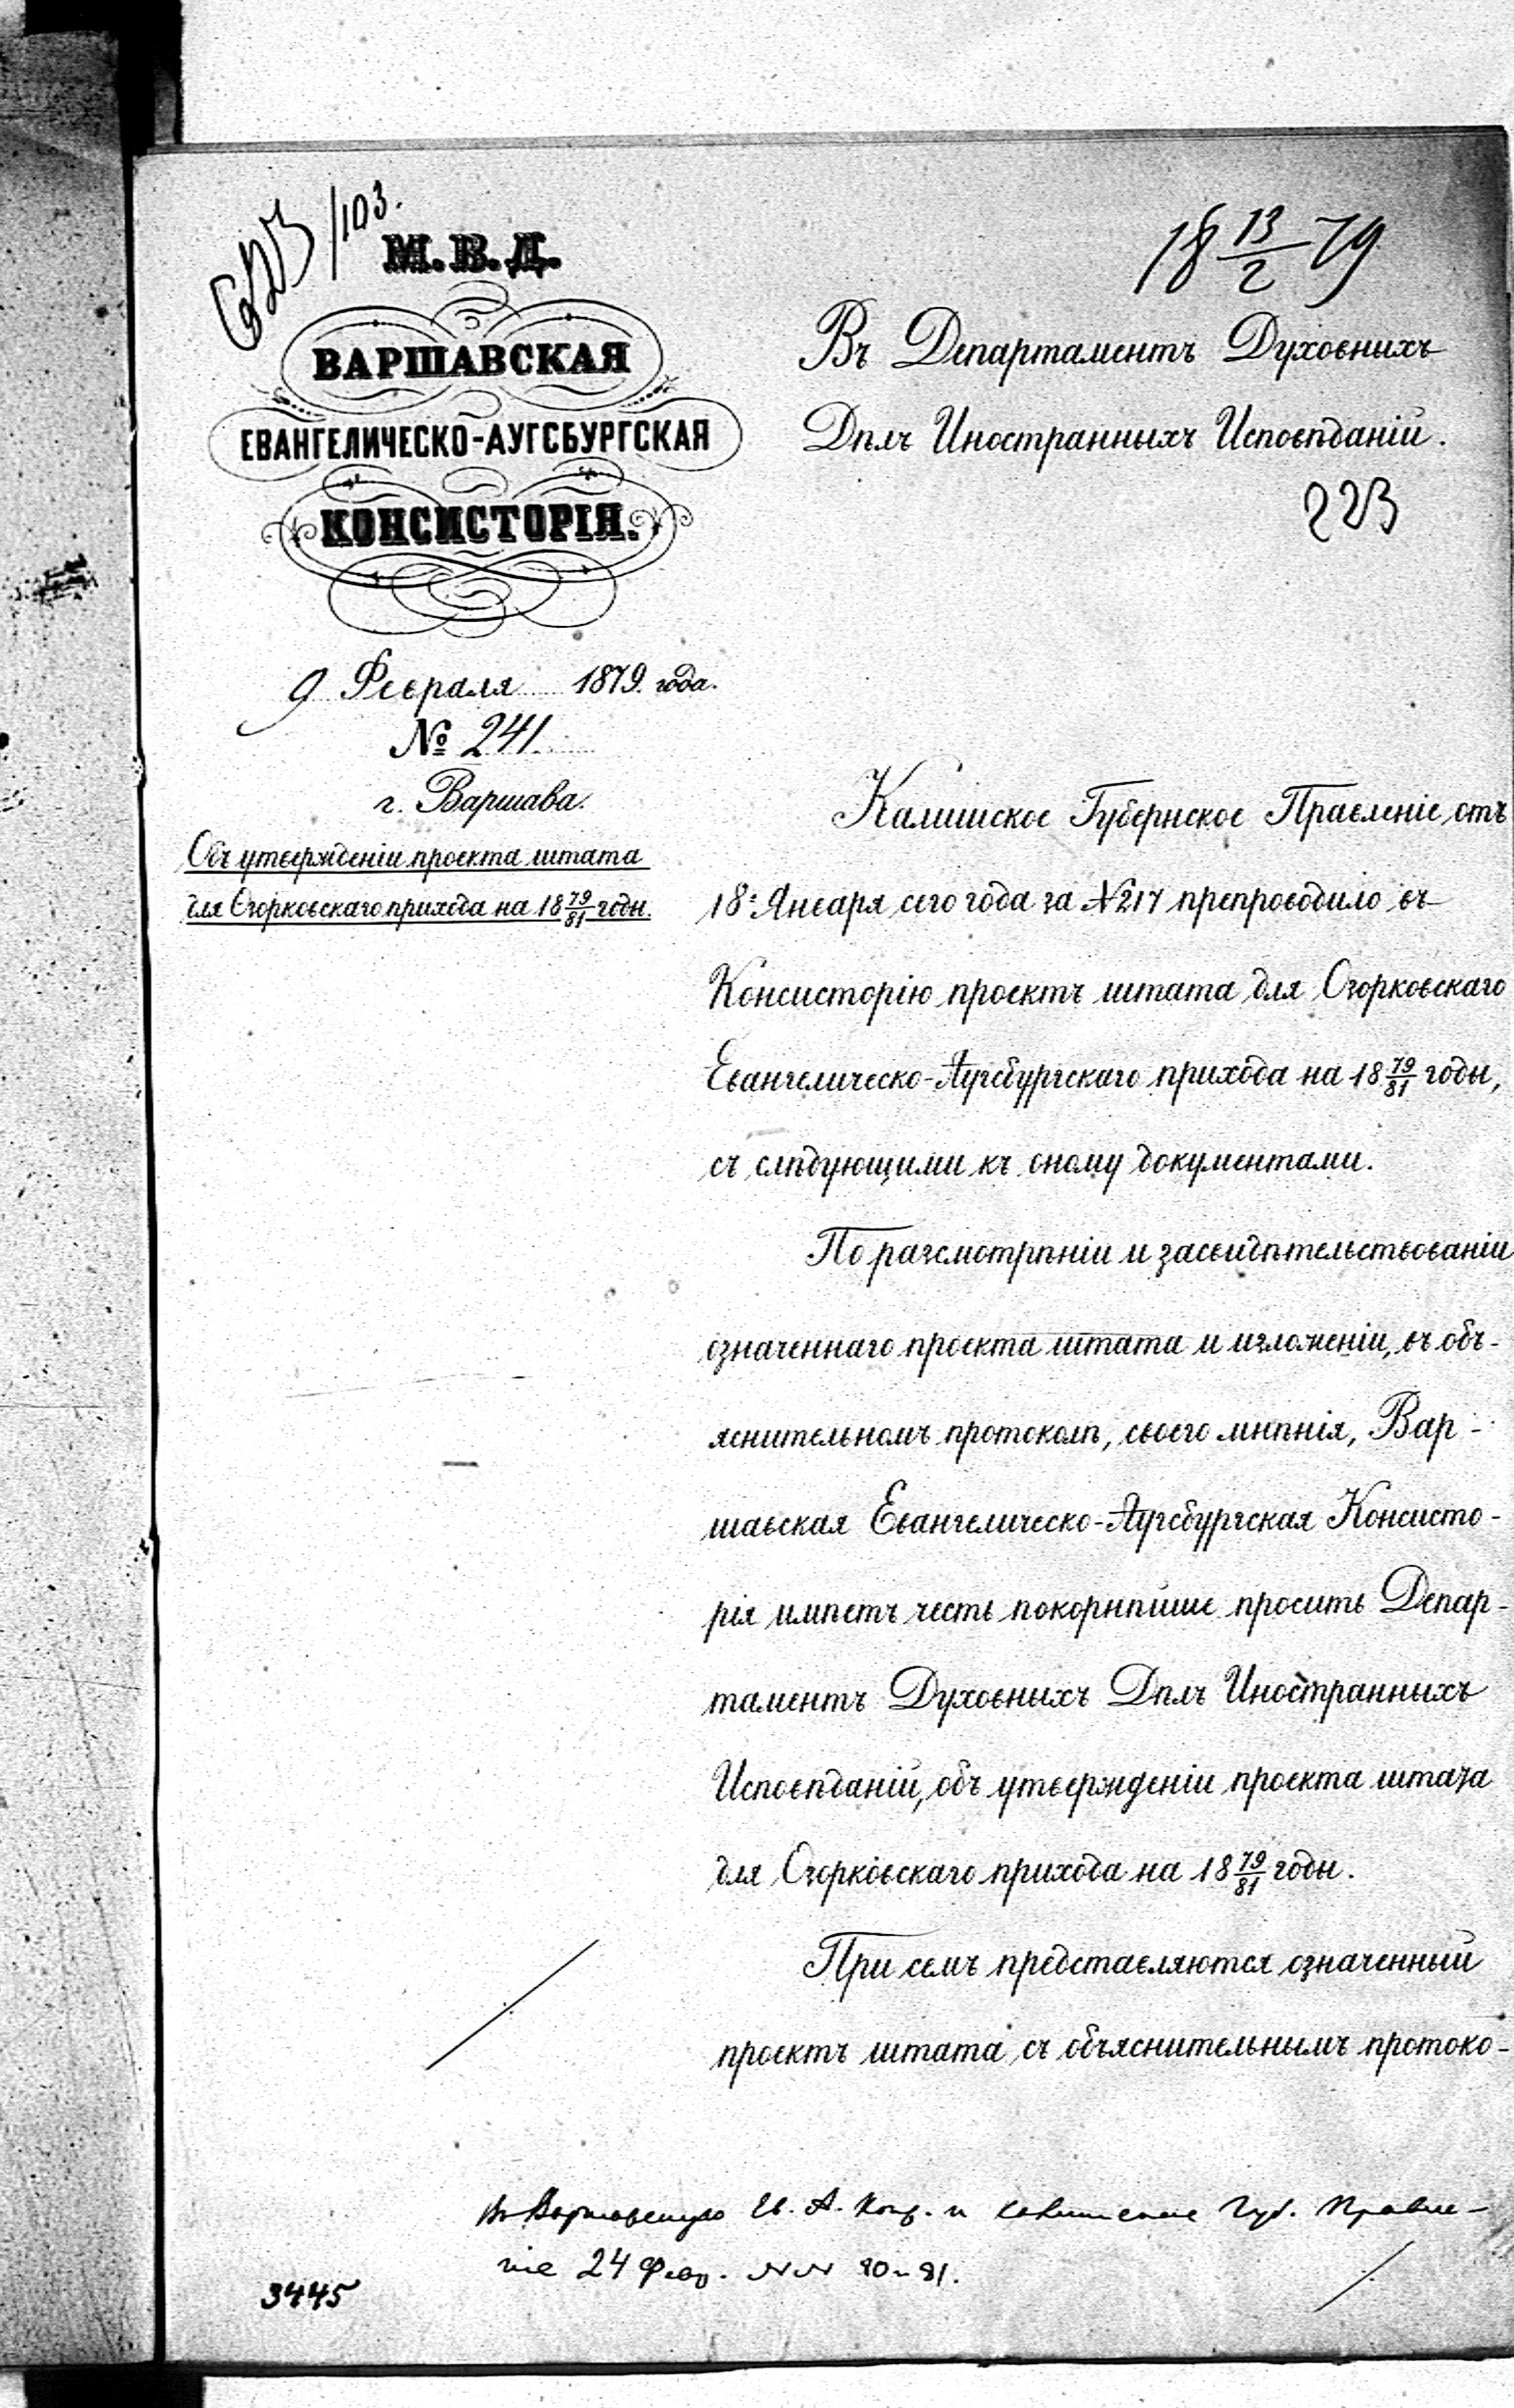 /103.
М. В. Д.
ВАРШАВСКАЯ
ЕВАНГЕЛИЧЕСКО-АУГСБУРГСКАЯ
КОНСИСТОРІЯ.
9 Февраля 1879 года.
№ 241.
г. Варшава.
Объ утвержденіи проекта штата
для Озорковскаго прихода на 18 79/81 годы.
18 13/2 79
Въ Департаментъ Духовныхъ
Дѣлъ Иностранныхъ Исповѣданій.
223
Калишское Губернское Правленіе, отъ
18. Января сего года за №217 препроводило въ
Консисторію проектъ штата для Озорковскаго
Евангелическо-Аугсбургскаго прихода на 18 79/81 годы,
съ слѣдующими къ оному документами.
По разсмотрѣніи и засвидѣтельствованіи
означеннаго проекта штата и изложеніи, въ объ-
яснительномъ протоколѣ, своего мнѣнія, Вар-
шавская Евангелическо-Аугсбургская Консисто-
рія имѣетъ честь покорнѣйше просить Депар-
таментъ Духовныхъ Дѣлъ Иностранныхъ
Исповѣданій, объ утвержденіи проекта штата
для Озорковскаго прихода на 18 79/81 годы.
При семъ представляются означенный
проектъ штата съ объяснительнымъ протоко-
Въ Варшавскую Ев. А. Конс. и Калишское Губ. Правле-
ніе 24 Февр. №№ 80 и 81.
3445